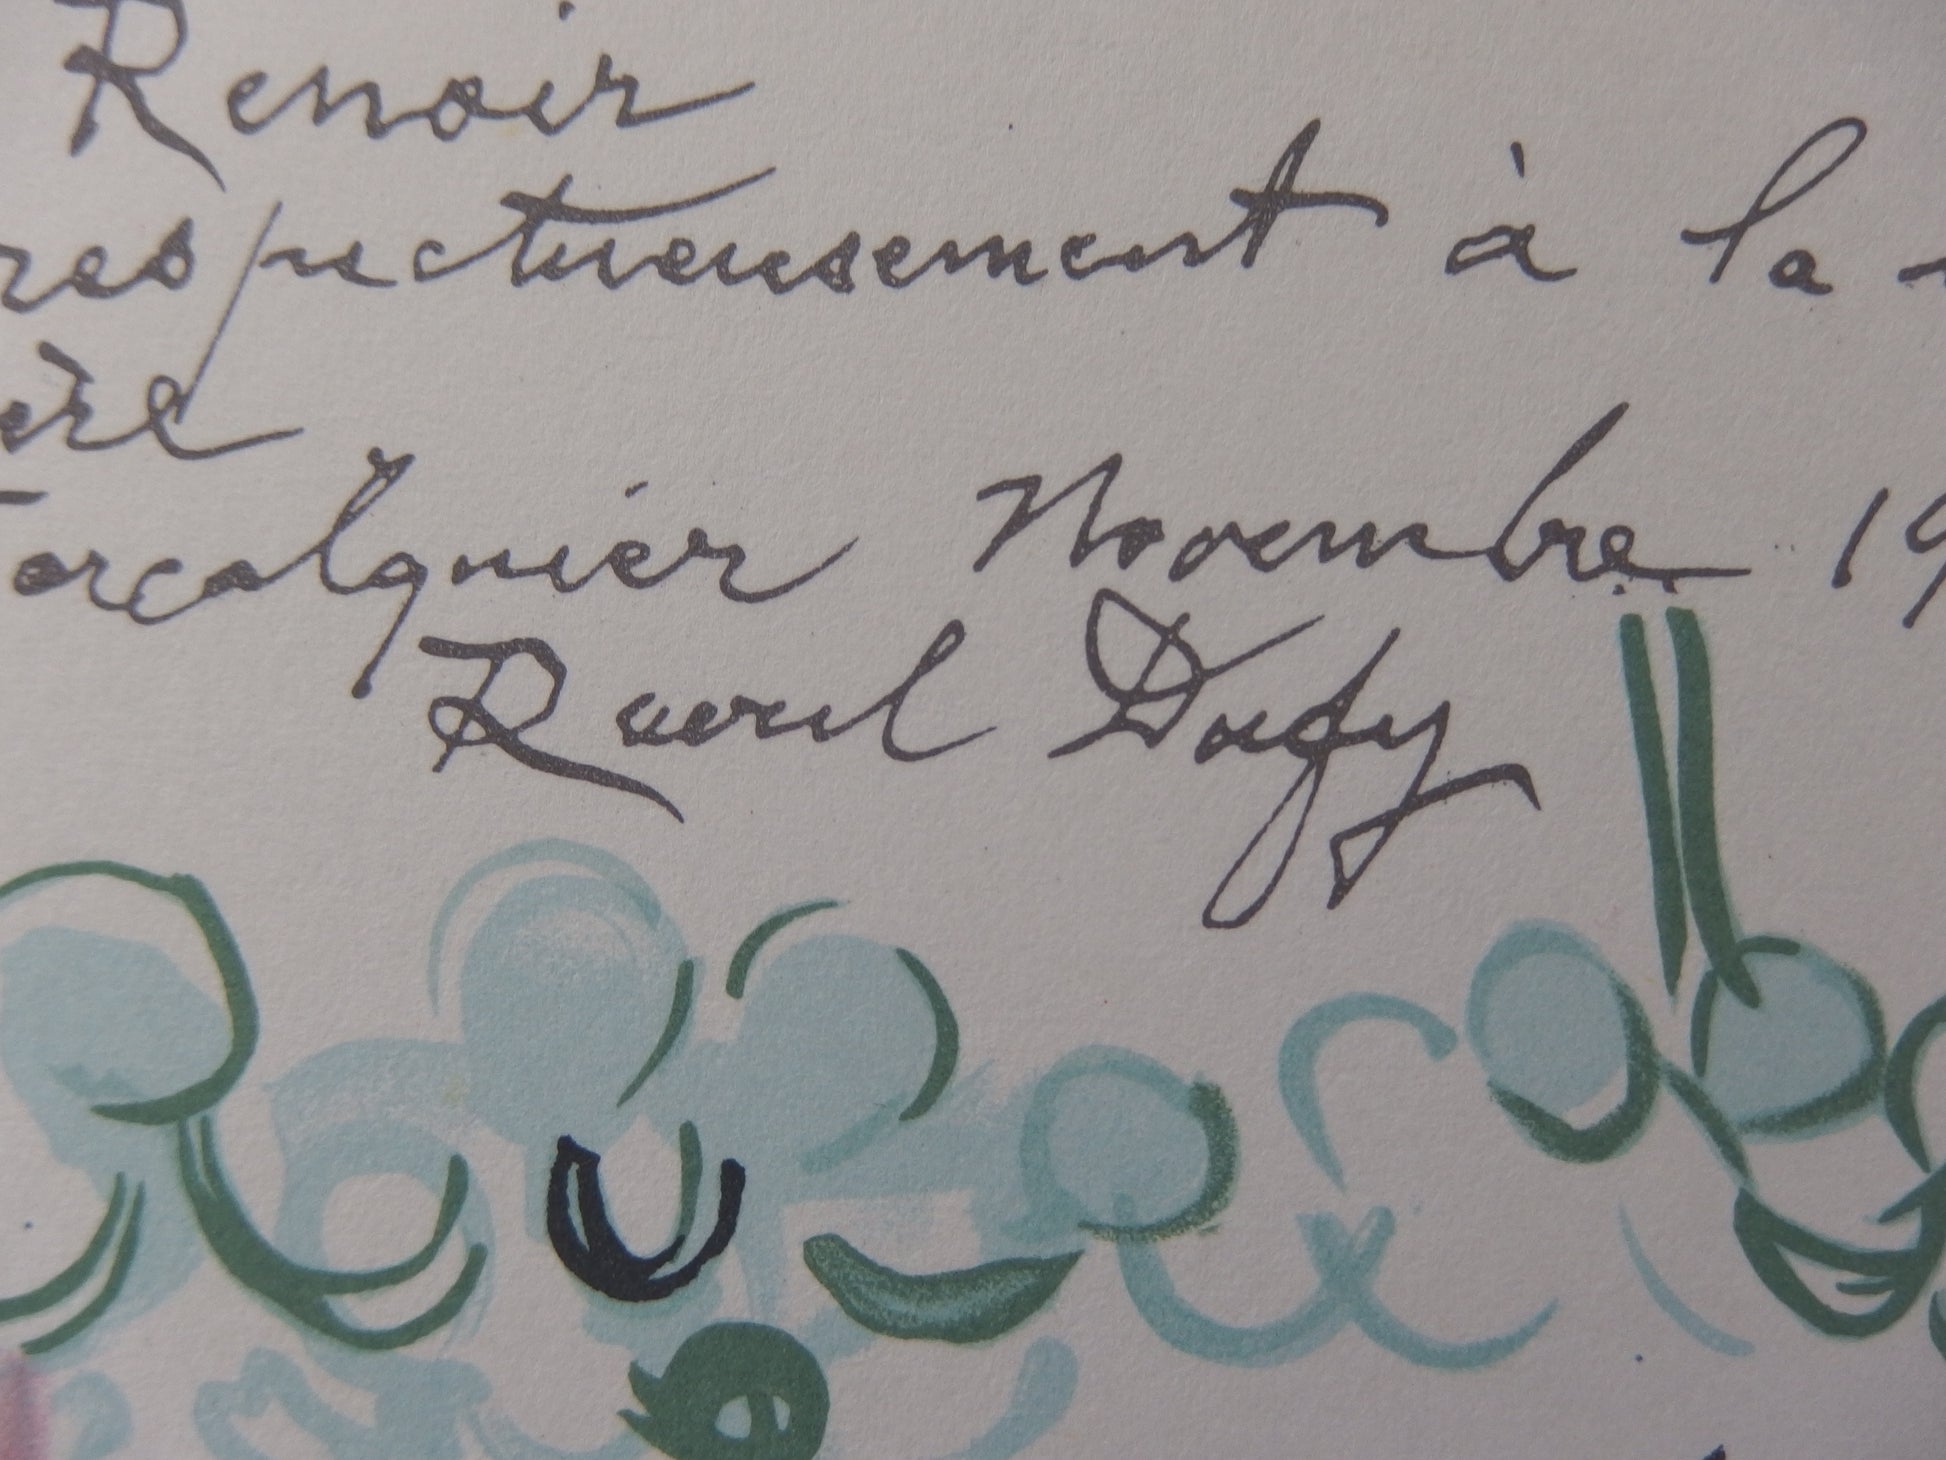 Renoir
respectueusement à la
ère
Forcalquier Novembre 19
Raoul Dufy